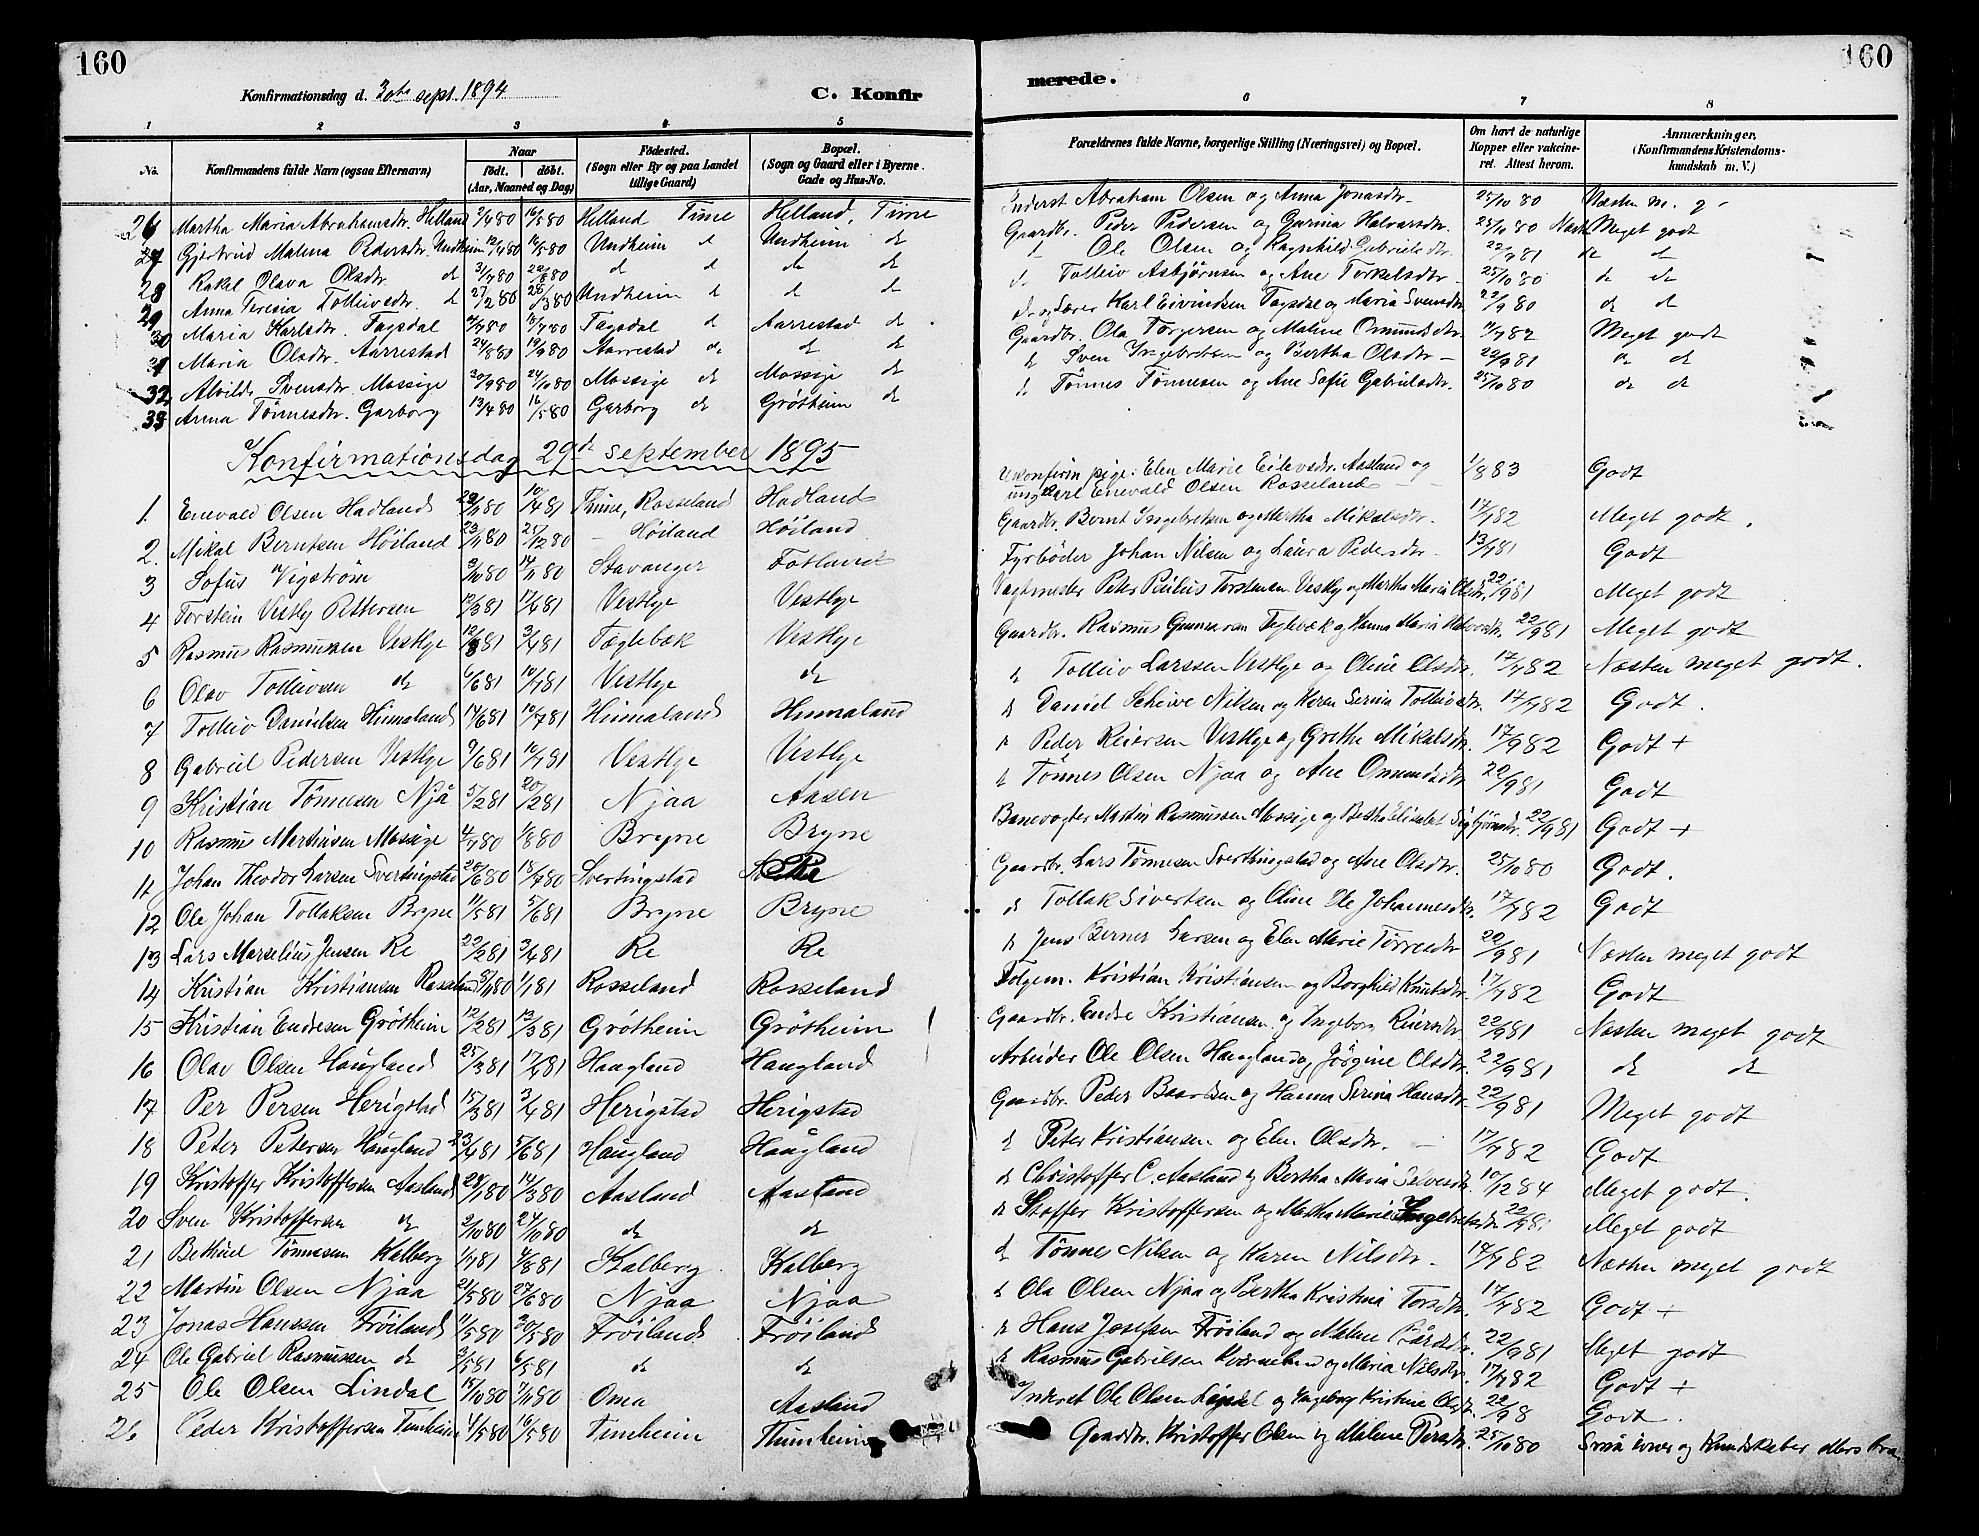 160
160
Konfirmationsdag d. 30te sept. 1894
C. Konfir
merede.
1 2 3 4 5 6 7 8
No. Konfirmandens fulde Navn (ogsaa Efternavn) Naar født. døbt. (Aar, Maaned og Dag) Fødested. (Sogn eller By og paa Landet tillige Gaard) Bopæl. (Sogn og Gaard eller i Byerne Gade og Hus-No. Forældrenes fulde Navne, borgerlige Stilling (Næringsvei) og Bopæl. Om havt de naturlige Kopper eller vakcineret. Attest herom. Anmærkninger. (Konfirmandens Kristendomskundskab m. V.)
26 Martha Maria Abrahamsdtr. Helland 9/4 80 16/5 80 Helland Time Helland, Time Inderst Abraham Olsen og Anna Jonasdtr. 25/10 80 Næsten m. g.
27 Gjertrud Malena Pedersdtr. Undheim 12/4 80 16/5 80 Undheim d Undheim d Gaardbr. Peder Pedersen og Gurina Halvorsdtr. 25/10 80 Næst. Meget godt
28 Rakel Olava Olsdtr. d 31/7 80 22/8 80 d d d d d Ole Olsen og Ragnhild Gabrielsdtr. 22/9 81 d d
29 Anna Teresia Tolleivsdtr. d 27/2 80 28/3 80 Undheim d d d d. Tolleiv Asbjørnsen og Ane Torkelsdtr. 25/10 80 d d
30 Maria Karlsdtr. Tagsdal 4/7 80 18/7 80 Tagsdal d Aarrestad d d. og Lærer Karl Eivindsen Tagsdal og Maria Svensdtr. 22/9 80 d d
31 Maria Olsdtr. Aarrestad 24/8 80 19/9 80 Aarrestad d d d Gaardbr. Ola Torgersen og Malene Omundsdtr. 17/7 82 Meget godt
32 Alvilde Svensdtr. Mossige 20/9 80 24/10 80 Mossige d Mossige d d Sven Ingebretsen og Bertha Olsdtr. 22/9 81 d d
33 Anna Tønnesdtr. Garborg 13/4 80 16/5 80 Garborg d Grötheim d d. Tönnes Tönnesen og Ane Sofie Gabrielsdtr. 25/10 80 d d
Konfirmationsdag 29de september 1895
1. Enevald Olsen Hadland 29/11 80 10/4 81 Thime, Rosseland Hadland Ukonfirm pige: Elen Marie Eilevsdtr. Aasland og ungkarl Enevald Olsen Rosseland 1/8 83 Godt
2. Mikal Berntsen Höiland 23/11 80 25/12 80 – Höiland Höiland Gaardbr. Bernt Ingebretsen og Martha Mikalsdtr. 17/7 82 Meget godt.
3 Sofus Vigström 3/10 80 14/11 80 Stavanger Fotland Fyrböder Johan Nilsen og Laura Pedersdtr. 13/7 81 Godt
4 Torstein Vestly Pettersen 12/3 81 17/4 81 Vestlye Vestlye Vagtmester Peter Paulus Torstensen Vestly og Martha Maria Olsdtr. 22/9 81 Meget godt
5 Rasmus Rasmussen Vestlye 12/3 81 3/4 81 Tæglebæk Vestlye Gaardbr. Rasmus Gunnarsen Teglebæk og Hanna Maria Halvorsdtr. 22/9 81 Meget godt
6 Olav Tolleivsen d 6/6 81 10/7 81 Vestlye d d Tolleiv Larssen Vestlye og Oline Olsdtr. 17/7 82 Næsten meget godt.
7 Tolleiv Danielsen Heimaland 14/6 81 10/7 81 Heimaland Heimaland d Daniel Scheive Nilsen og Karen Serina Tolleivsdtr. 17/7 82 Godt.
8 Gabriel Pedersen Vestlye 9/6 81 10/7 81 Vestlye Vestlye d Peder Reiersen Vestlye og Grethe Mikalsdtr. 17/9 82 Godt +
9 Kristian Tönnesen Njå 5/2 81 20/2 81 Njaa Aasen d Tönnes Olsen Njaa og Ane Omundsdtr 22/9 81 Godt
10 Rasmus Martinsen Mossige 4/7 80 1/8 80 Bryne Bryne Banevogter Martin Rasmussen Mossige og Bertha Elisabet Sigbjörnsdtr. 22/9 81 Godt +
11 Johan Theodor Larsen Svertingstad 20/6 80 18/7 80 Svertingstad Re Gaardbr. Lars Tönnesen Svertingstad og Ane Olsdtr. 25/10 80 Godt.
12 Ole Johan Tollaksen Bryne 11/5 81 5/6 81 Bryne Bryne d Tollak Sivertsen og Oline Ole Johannesdtr. 17/7 82 Godt
13 Lars Marselius Jensen Re 22/2 81 3/4 81 Re Re d Jens Berner Larsen og Elen Marie Törresdtr 22/9 81 Næsten meget godt
14 Kristian Kristiansen Rosseland 5/11 80 1/1 81 Rosseland Rosseland Folgem. Kristian Kristiansen og Borghild Knutsdtr. 17/7 82 Godt
15 Kristian Endresen Grötheim 12/2 81 13/3 81 Grötheim Grötheim Gaardbr. Endre Kristiansen og Ingeborg Reiersdtr 22/9 81 Næsten meget godt
16 Olav Olsen Haugland 25/3 81 17/4 81 Haugland Haugland Arbeider Ole Olsen Haugland og Jörgine Olsdtr. 22/9 81 d d
17 Per Persen Herigstad 15/3 81 3/4 81 Herigstad Herigstad Gaardbr. Peder Baardsen og Hanna Serina Hansdtr. 22/9 81 Meget godt
18 Peter Petersen Haugland 23/4 81 5/6 81 Haugland Haugland d Peter Kristiansen og Elen Olsdtr. – 17/7 82 Godt
19 Kristoffer Kristoffersen Aasland 28/1 80 14/3 80 Aasland Aasland d Christoffer C. Aasland og Bertha Maria Selvesdtr. 10/12 84 Meget godt.
20 Sven Kristoffersen d 2/10 80 24/10 80 d d d Stoffer Kristoffersen og Martha Marie Ingebretsdtr 22/9 81 Meget godt
21 Bethuel Tönnesen Kalberg 1/7 81 4/8 81 Kalberg Kalberg d Tönnes Nilsen og Karen Nilsdtr. 14/7 82 Næsten meget godt
22 Martin Olsen Njaa 21/5 80 27/6 80 Njaa Njaa d Ola Olsen Njaa og Bertha Kristina Torsdtr. 17/7 82 Godt +
23 Jonas Hanssen Fröiland 1/5 80 20/5 80 Fröiland Fröiland d Hans Josefsen Fröiland og Malene Bårdsdtr. 22/9 81 Meget godt
24 Ole Gabriel Rasmussen d 3/5 81 6/5 81 d d d Rasmus Gabrielsen Kværneland og Maria Nilsdtr. 17/7 82 Godt +
25 Ole Olsen Lindal 15/10 80 7/11 80 Oma Aasland Inderst Ole Olsen Lindal og Ingeborg Kristine Olsdt. 22/9 8 Godt.
26 Peder Kristoffersen Timheim 4/5 80 16/5 80 Timheim Thimheim Gaardbr. Kristoffer Olsen og Malene Persdtr. 25/10 80 Små evner og Kundskaber ellers bra